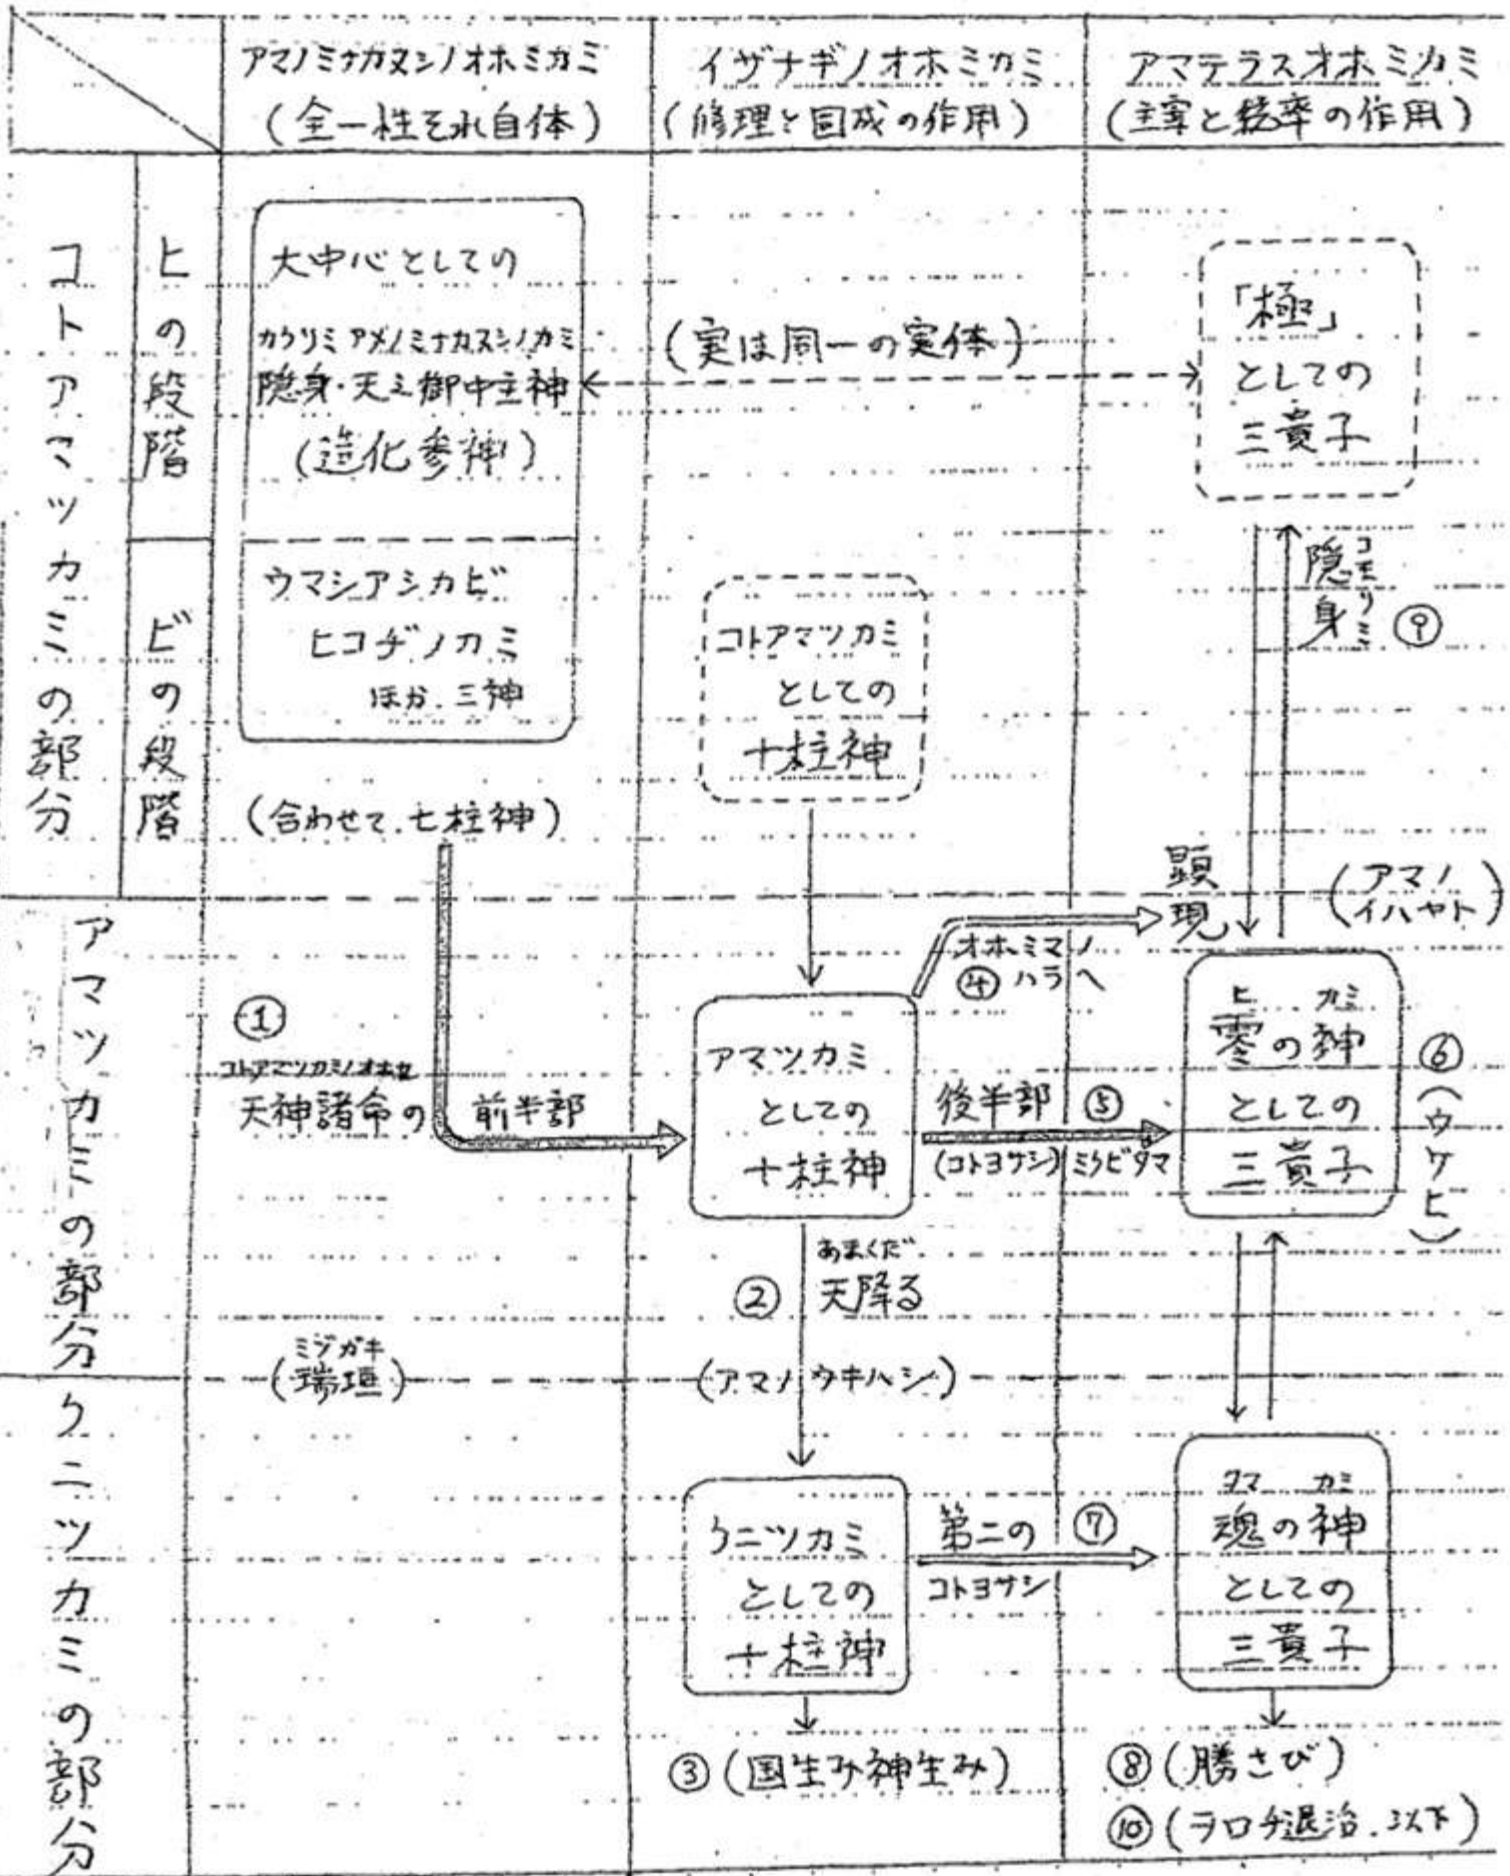 アマノミナカヌシノオホミカミ
(全一性それ自体)
イザナギノオホミカミ
(修理と固成の作用)
アマテラスオホミカミ
(主宰と統率の作用)
コトアマツカミの部分
ヒの段階
ビの段階
大中心としての
カクリミ アメノミナカヌシノカミ
隠身・天之御中主神
(造化参神)
ウマシアシカビ
ヒコヂノカミ
ほか、三神
(合わせて、七柱神)
(実は同一の実体)
「極」
としての
三貴子
コトアマツカミ
としての
十柱神
コモリミ
隠身 ⑨
顕現
(アマノ
イハヤト)
アマツカミの部分
①
コトアマツカミノオホセ
天神諸命の 前半部
オホミマノ
④ ハラヘ
アマツカミ
としての
十柱神
後半部 ⑤
(コトヨサシ) ミクビタマ
ヒ カミ
零の神
としての
三貴子
⑥(ウケヒ)
あまくだ
② 天降る
ミヅガキ
(瑞垣)
(アマノウキハシ)
クニツカミの部分
クニツカミ
としての
十柱神
第二の ⑦
コトヨサシ
タマ カミ
魂の神
としての
三貴子
③(国生み神生み)
⑧(勝さび)
⑩(ヲロチ退治、以下)